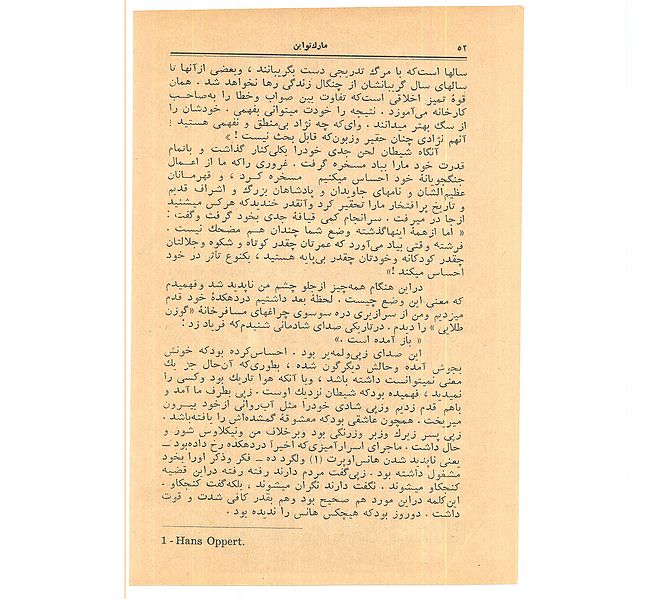 ۵۲ مارك‌تواین
سالها است‌که با مرگ تدریجی دست بگریبانند ، وبعضی ازآنها تا
سالهای سال گریبانشان از چنگال زندگی رها نخواهد شد . همان
قوهٔ تمیز اخلاقی است‌که تفاوت بین صواب وخطا را به‌صاحب
کارخانه می‌آموزد . نتیجه را خودت میتوانی بفهمی . خودشان را
از سگ بهتر میدانند . وای‌که چه نژاد بی‌منطق و نفهمی هستید !
آنهم نژادی چنان حقیر وزبون‌که قابل بحث نیست ! »
آنگاه شیطان لحن جدی خودرا بکلی‌کنار گذاشت و باتمام
قدرت خود مارا بباد مسخره گرفت . غروری راکه ما از اعمال
جنگجویانهٔ خود احساس میکنیم مسخره کرد ، و قهرمانان
عظیم‌الشان و نامهای جاویدان و پادشاهان بزرگ و اشراف قدیم
و تاریخ پرافتخار مارا تحقیر کرد وآنقدر خندیدکه هرکس میشنید
ازجا در میرفت . سرانجام کمی قیافهٔ جدی بخود گرفت وگفت :
« اما ازهمهٔ اینهاگذشته وضع شما چندان هم مضحك نیست .
فرشته وقتی بیاد می‌آورد که عمرتان چقدر کوتاه و شکوه وجلالتان
چقدر کودکانه وخودتان چقدر بی‌پایه هستید ، بکنوع تأثر در خود
احساس میکند !»
دراین هنگام همه‌چیز ازجلو چشم من ناپدید شد وفهمیدم
که معنی این وضع چیست . لحظهٔ بعد داشتیم دردهکدهٔ خود قدم
میزدیم ومن از سرازیری دره سوسوی چراغهای مسافرخانهٔ «گوزن
طلایی » را دیدم . درتاریکی صدای شادمانی شنیدم‌که فریاد زد :
« باز آمده است .»
این صدای زپی‌ولمه‌یر بود . احساس‌کرده بودکه خونش
بجوش آمده وحالش دیگرگون شده ، بطوری‌که آن‌حال جز یك
معنی نمیتوانست داشته باشد ، وبا آنکه هوا تاریك بود وکسی را
نمیدید ، فهمیده بودکه شیطان نزدیك اوست . زپی بطرف ما آمد و
باهم قدم زدیم وزپی شادی خودرا مثل آب‌روانی ازخود بیرون
میریخت . همچون عاشقی بودکه معشوقهٔ گمشده‌اش را یافته‌باشد .
زپی پسر زیرك وزبر وزرنگی بود وبرخلاف من ونیکلاوس شور و
حال داشت . ماجرای اسرارآمیزی‌که اخیراً دردهکده رخ داده‌بود ــ
یعنی ناپدید شدن هانس‌اوپرت (۱) ولگرد ده ــ فکر وذکر اورا بخود
مشغول داشته بود . زپی‌گفت مردم دارند رفته رفته دراین قضیه
کنجکاو میشوند . نگفت دارند نگران میشوند ، بلکه‌گفت کنجکاو .
این‌کلمه دراین مورد هم صحیح بود وهم بقدر کافی شدت و قوت
داشت . دوروز بودکه هیچکس هانس را ندیده بود .
1 - Hans Oppert.